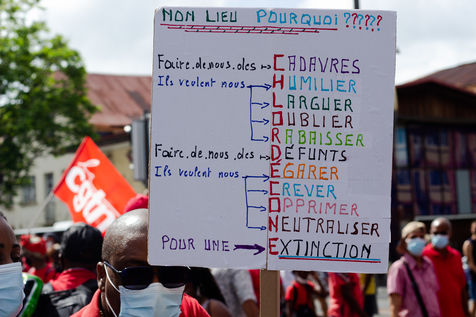 NON LIEU POURQUOI ???????
Faire.de.nous.des CADAVRES
Ils veulent nous HUMILIER
LARGUER
OUBLIER
RABAISSER
Faire.de.nous.des DEFUNTS
Ils veulent nous EGARER
CREVER
OPPRIMER
NEUTRALISER
POUR UNE EXTINCTION
cgtm